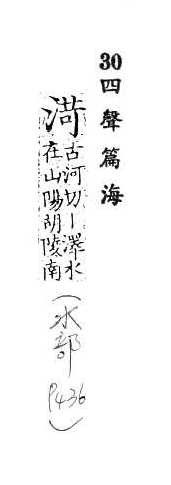 30四聲篇海
渮
古河切丨澤水
在山陽胡陵南
(水部 P436)